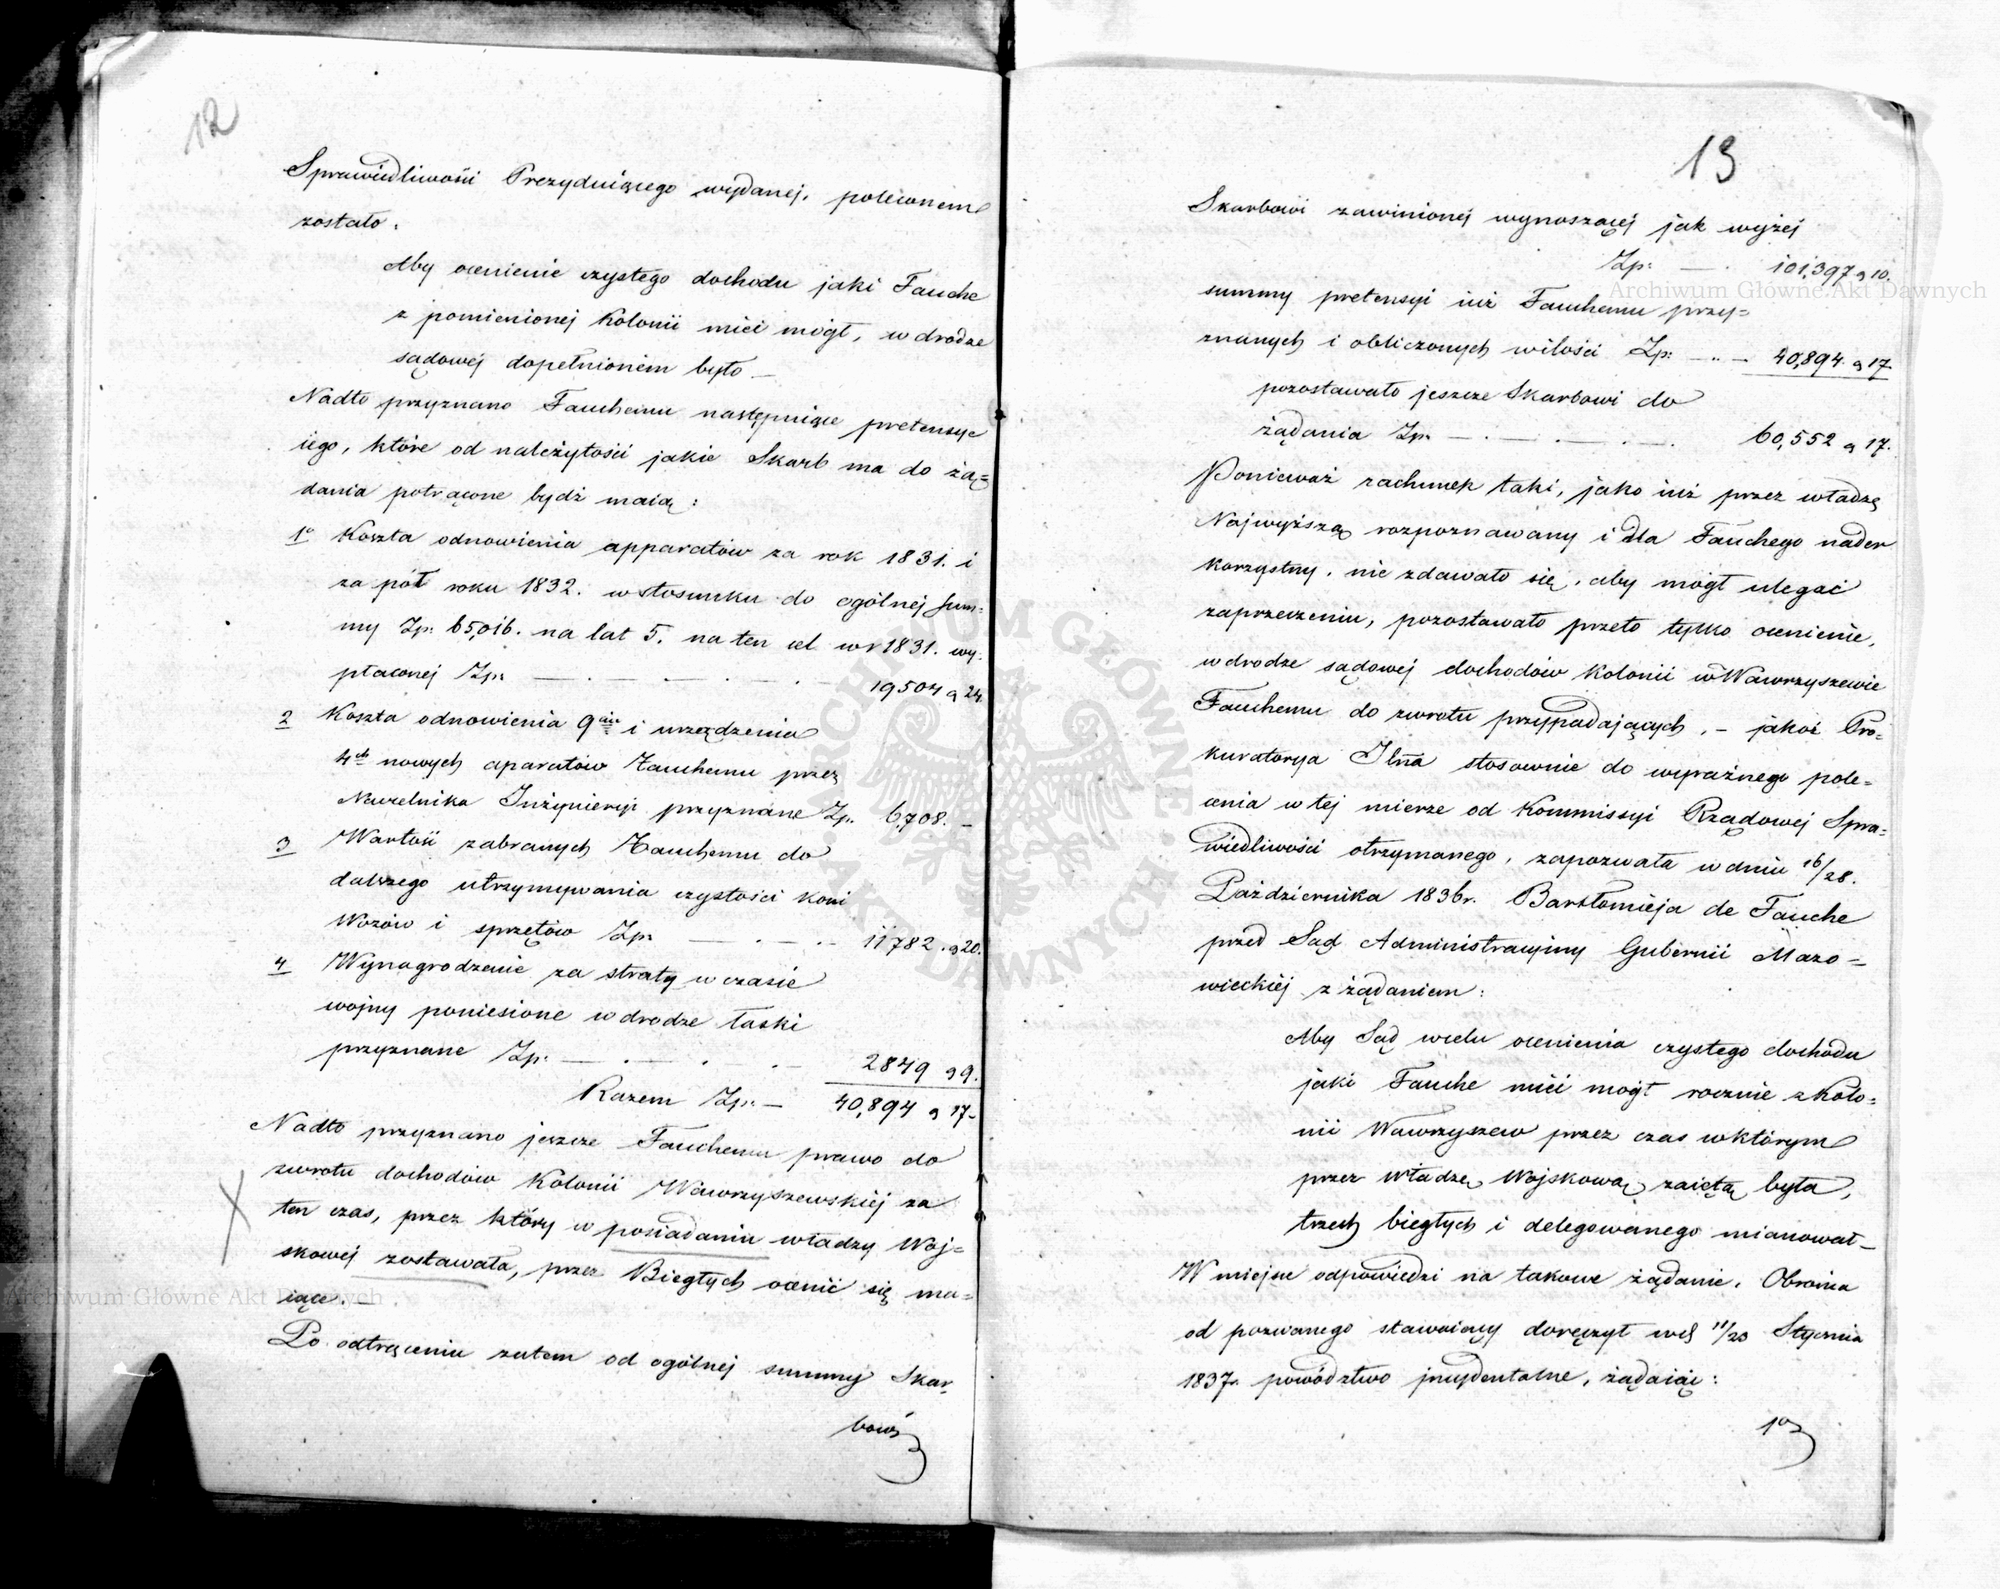 12
Sprawiedliwości Prezyduiącego wydanej, poleconem
zostało.
Aby ocenienie czystego dochodu jaki Fauche
z pomienionej Kolonii mieć mógł, w drodze
sądowej dopełnionem było —
Nadto przyznano Fauchemu następuiące pretensye
iego, które od należytości jakie Skarb ma do żą=
dania potrącone bydź maią:
1º Koszta odnowienia apparatów za rok 1831. i
za pół roku 1832. w stosunku do ogólnej sum=
my Zp: 65,016. na lat 5. na ten cel w r 1831. wy=
płaconej Zp: — . — . — . — 19504 g 24.
2 Koszta odnowienia 9ciu i urządzenia
4ch nowych aparatów Fauchemu przez
Naczelnika Inżynieryi przyznane Zp. 6,708. —
3 Wartość zabranych Fauchemu do
dalszego utrzymywania czystości koni
Wozów i sprzętów Zp: — . — .. 11782 . g 20.
4 Wynagrodzenie za straty w czasie
wojny poniesione w drodze łaski
przyznane Zp: — . — . . — 2849 g 9.
Razem Zp: — 40,894 g 17 —
Nadto przyznano jeszcze Fauchemu prawo do
zwrotu dochodów Kolonii Wawrzyszewskiej za
ten czas, przez który w posiadaniu władzy Woj=
skowej zostawała, przez Biegłych ocenić się ma=
iące. —
Po odtrąceniu zatem od ogólnej summy Skar=
bowi
13
Skarbowi zawinionej wynoszącej jak wyżej
Zp: — . 101,397 g 10.
summy pretensyi iuż Fauchemu przy=
znanych i obliczonych w ilości Zp: — .. — 40,894. g 17
pozostawało jeszcze Skarbowi do
żądania Zp: — . — . — . — . 60,552 g 17.
Ponieważ rachunek taki, jako iuż przez władzę
Najwyższą rozpoznawany i dla Fauchego nader
korzystny, nie zdawało się, aby mógł ulegać
zaprzeczeniu, pozostawało przeto tylko ocenienie,
w drodze sądowej dochodów Kolonii w Wawrzyszewie
Fauchemu do zwrotu przypadających, — jakoż Pro=
kuratorya Jlna stosownie do wyraźnego pole=
cenia w tej mierze od Kommissyi Rządowej Spra=
wiedliwości otrzymanego, zapozwała w dniu 16/28.
Października 1836 r. Bartłomieja de Fauche
przed Sąd Administracyjny Gubernii Mazo=
wieckiej z żądaniem:
Aby Sąd w celu ocenienia czystego dochodu
jaki Fauche mieć mógł rocznie z Kolo=
nii Wawrzyszew przez czas w którym
przez Władzę Wojskową zaiętą była,
trzech biegłych i delegowanego mianował —
W miejsce odpowiedzi na takowe żądanie, Obrońca
od pozwanego stawaiący doręczył w d 11/23 Stycznia
1837 r. powództwo incydentalne, żądaiąc:
1º
Archiwum Główne Akt Dawnych
Archiwum Główne Akt Dawnych
ARCHIWUM GŁÓWNE AKT DAWNYCH